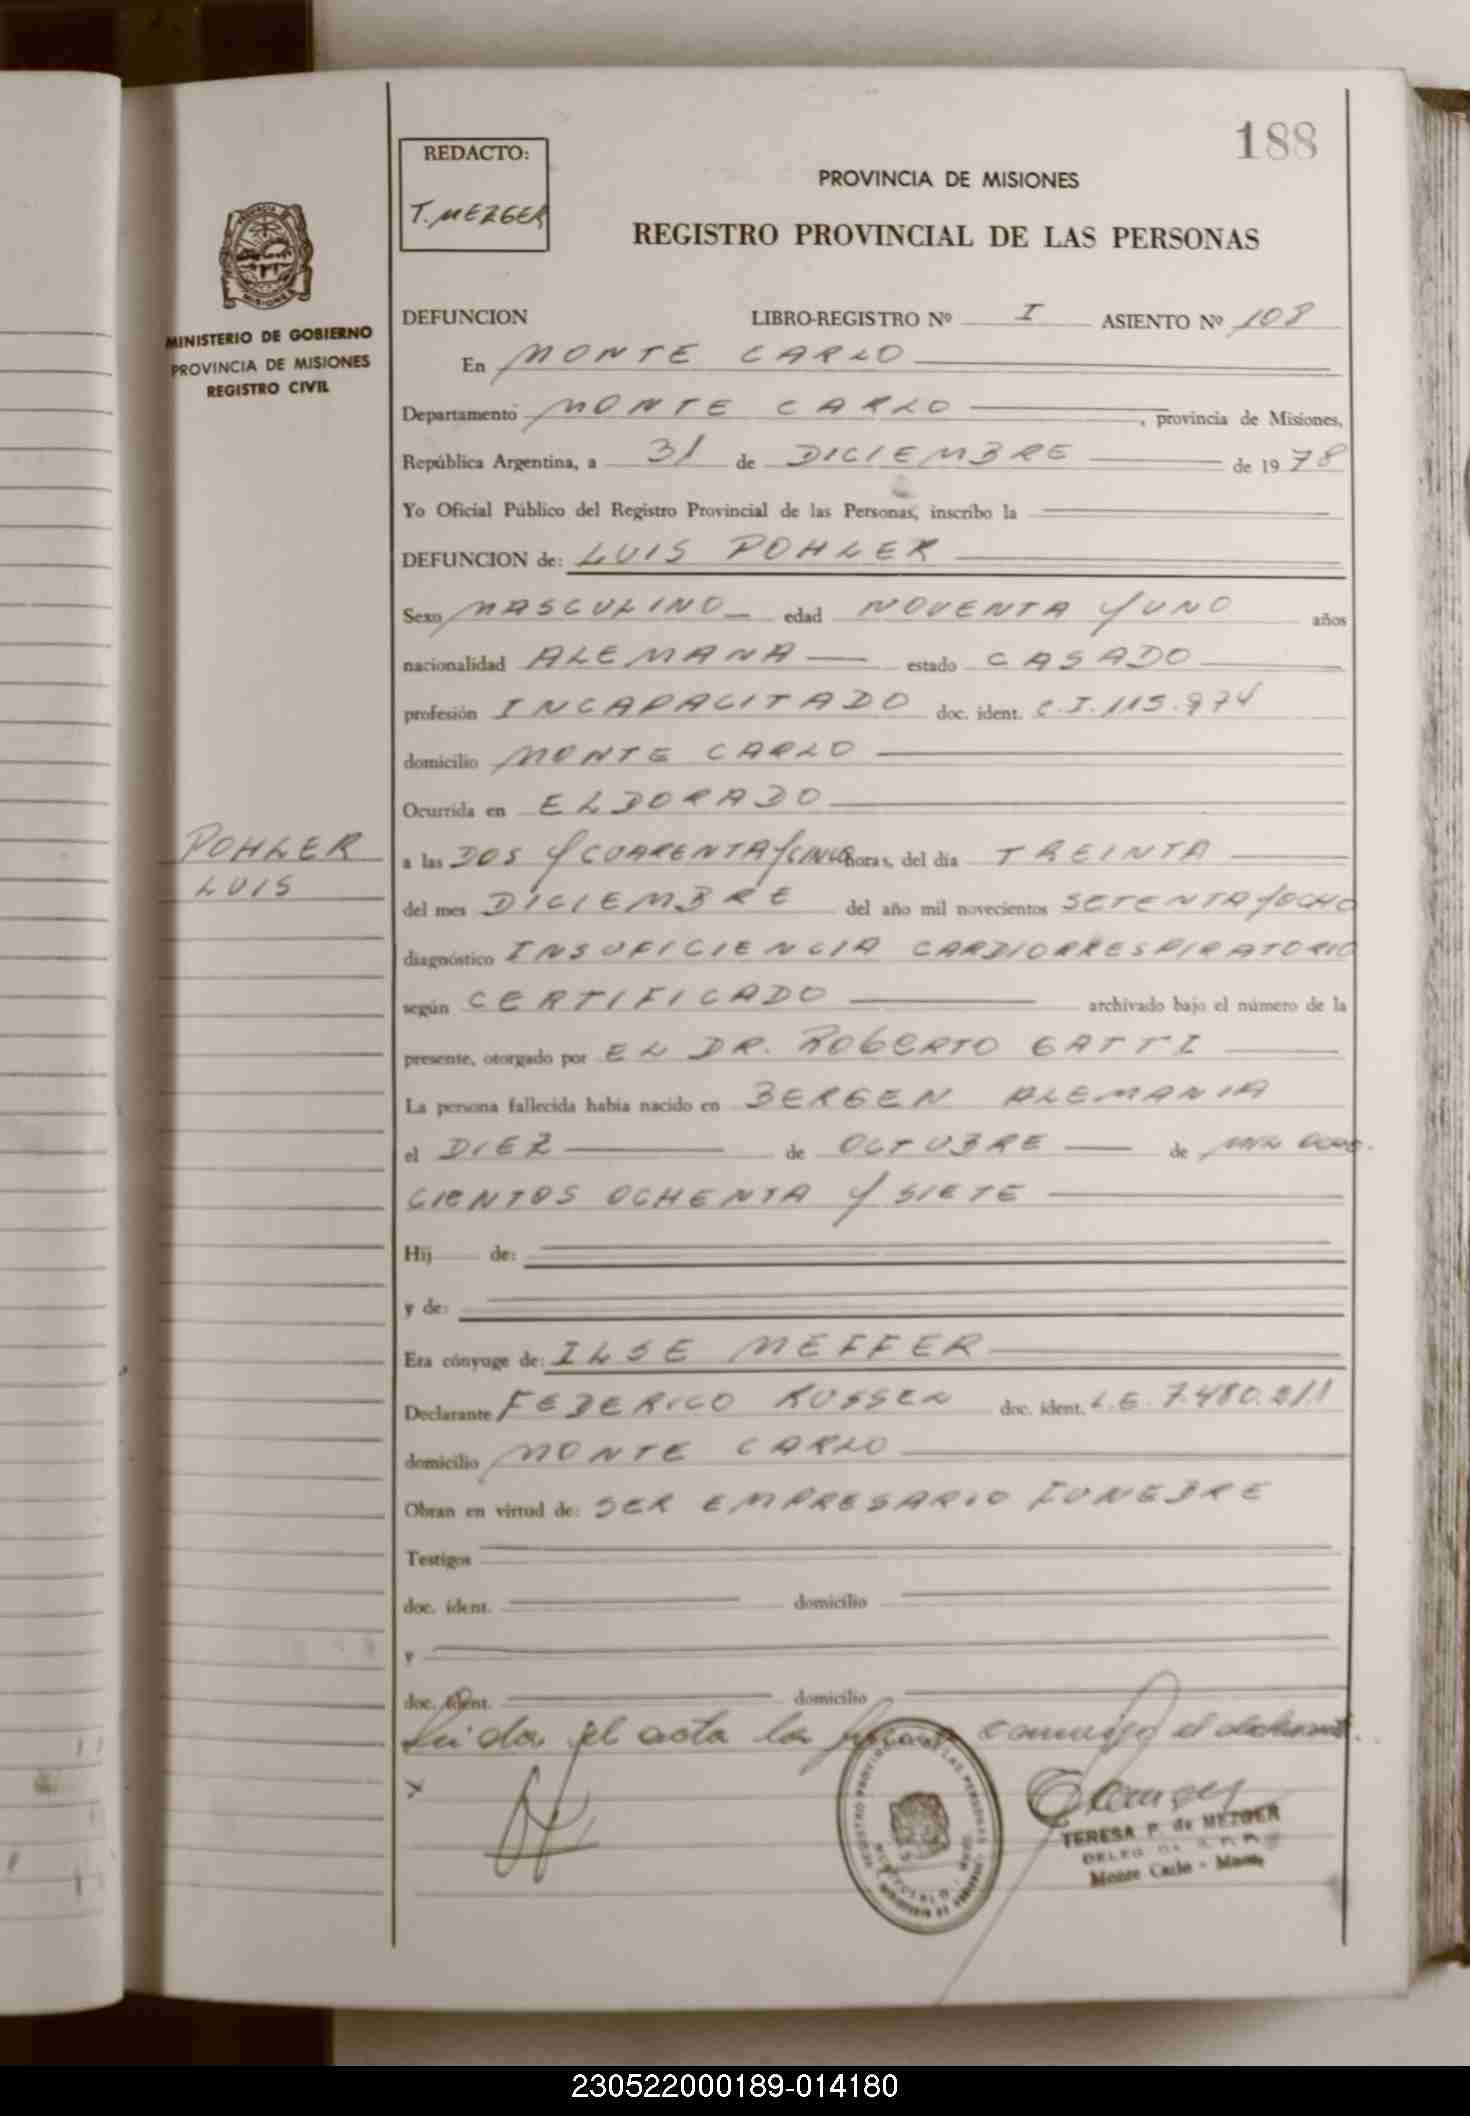 188
REDACTO:
T. MEZGER
PROVINCIA DE MISIONES
REGISTRO PROVINCIAL DE LAS PERSONAS
MISIONES
MINISTERIO DE GOBIERNO
PROVINCIA DE MISIONES
REGISTRO CIVIL
DEFUNCION LIBRO-REGISTRO Nº I ASIENTO Nº 108
En MONTE CARLO
Departamento MONTE CARLO, provincia de Misiones,
República Argentina, a 31 de DICIEMBRE de 1978
Yo Oficial Público del Registro Provincial de las Personas, inscribo la
DEFUNCION de: LUIS POHLER
Sexo MASCULINO edad NOVENTA Y UNO años
nacionalidad ALEMANA estado CASADO
profesión INCAPACITADO doc. ident. C.I. 115.974
domicilio MONTE CARLO
Ocurrida en ELDORADO
POHLER
LUIS
a las DOS Y CUARENTA Y CINCO horas, del día TREINTA
del mes DICIEMBRE del año mil novecientos SETENTA Y OCHO
diagnóstico INSUFICIENCIA CARDIORRESPIRATORIO
según CERTIFICADO archivado bajo el número de la
presente, otorgado por EL DR. ROBERTO GATTI
La persona fallecida había nacido en BERGEN ALEMANIA
el DIEZ de OCTUBRE de MIL OCHO-
CIENTOS OCHENTA Y SIETE
Hij de:
y de:
Era cónyuge de: ILSE MEFFER
Declarante FEDERICO RUSSEL doc. ident. L.E. 7.480.211
domicilio MONTE CARLO
Obran en virtud de: SER EMPRESARIO FUNEBRE
Testigos
doc. ident. domicilio
y
doc. ident. domicilio
Leida el acta la firma conmigo el declarante.
TERESA P. de MEZGER
DELEG. R. P. P.
Monte Carlo - Mnes.
230522000189-014180